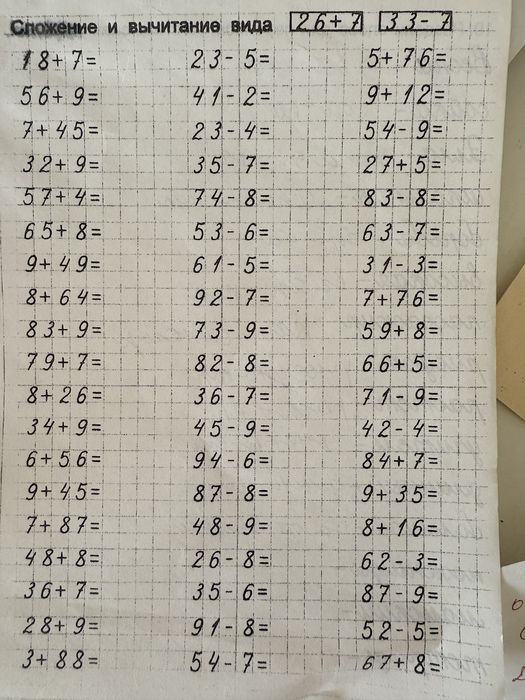 Сложение и вычитание вида 26+7 33-7
18+7= 23-5= 5+76=
56+9= 41-2= 9+12=
7+45= 23-4= 54-9=
32+9= 35-7= 27+5=
57+4= 74-8= 83-8=
65+8= 53-6= 63-7=
9+49= 61-5= 31-3=
8+64= 92-7= 7+76=
83+9= 73-9= 59+8=
79+7= 82-8= 66+5=
8+26= 36-7= 71-9=
34+9= 45-9= 42-4=
6+56= 94-6= 84+7=
9+45= 87-8= 9+35=
7+87= 48-9= 8+16=
48+8= 26-8= 62-3=
36+7= 35-6= 87-9=
28+9= 91-8= 52-5=
3+88= 54-7= 67+8=